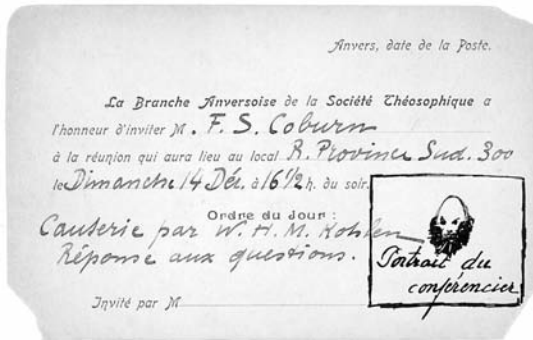 Anvers, date de la Poste.
La Branche Anversoise de la Société Théosophique a
l'honneur d'inviter M. F. S. Coburn
à la réunion qui aura lieu au local R. Province Sud. 300
le Dimanche 14 Déc. à 16 1/2 h. du soir.
Ordre du Jour :
Causerie par W. H. M. Kohlen
Réponse aux questions.
Portrait du
conférencier
Invité par M